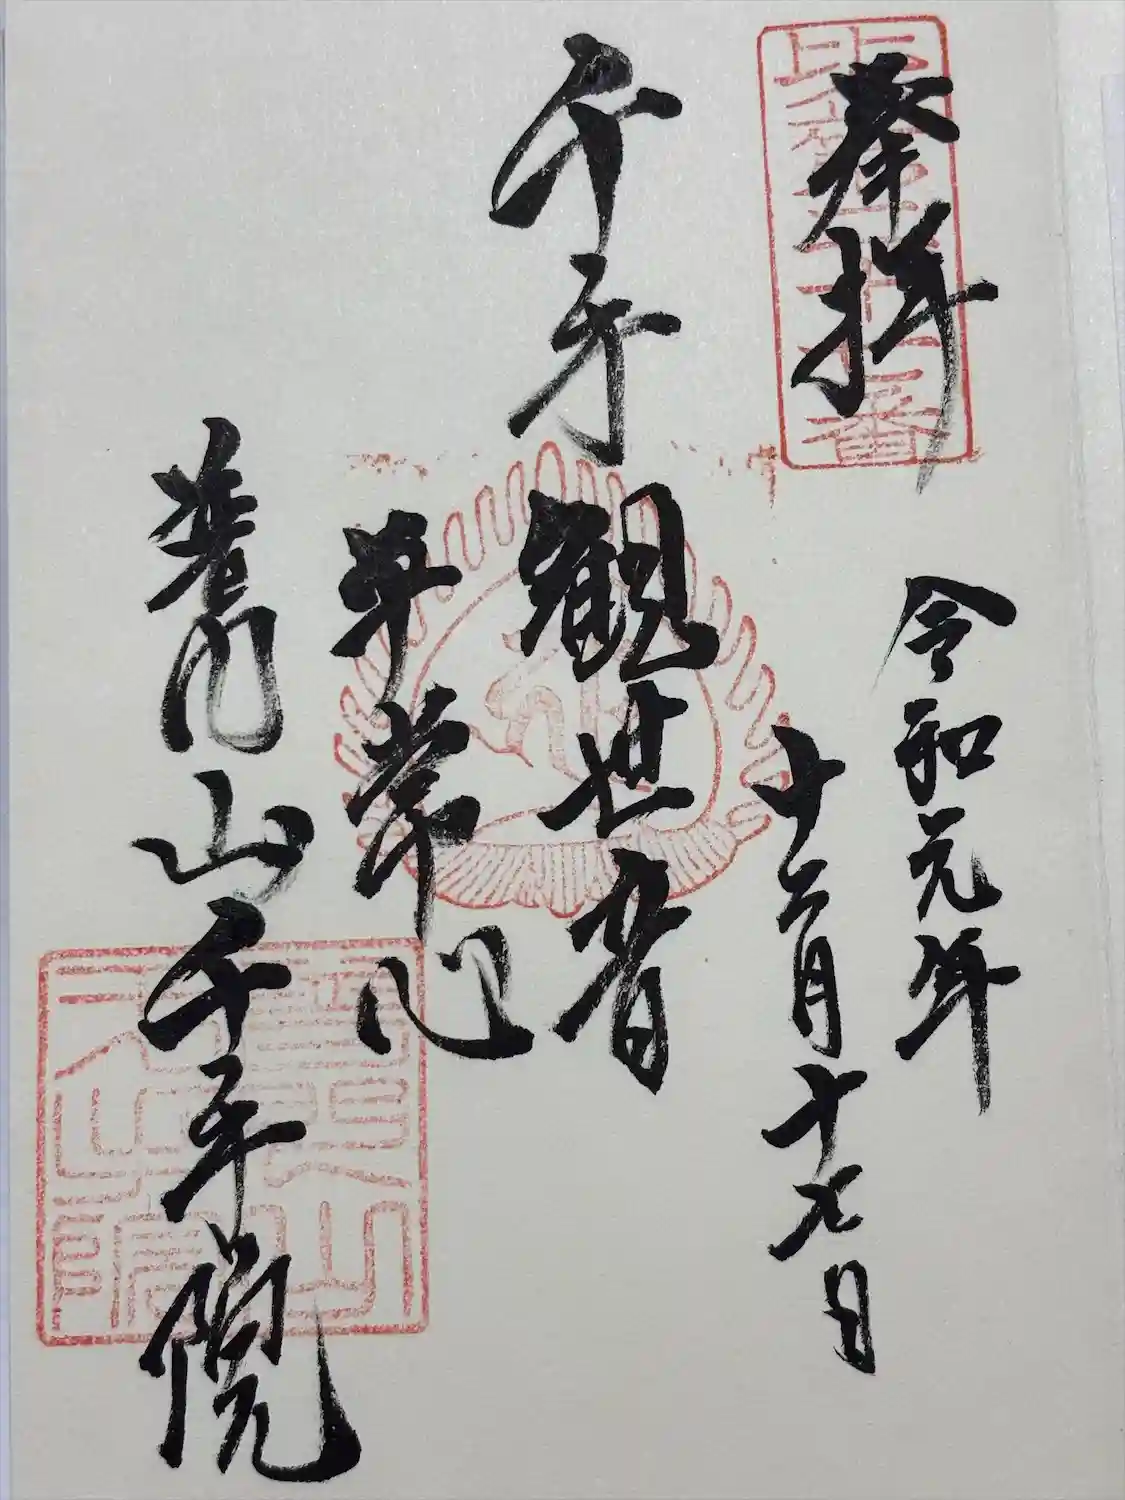 奉拝
令和元年
十二月十七日
千手
観世音
平常心
普門山千手院